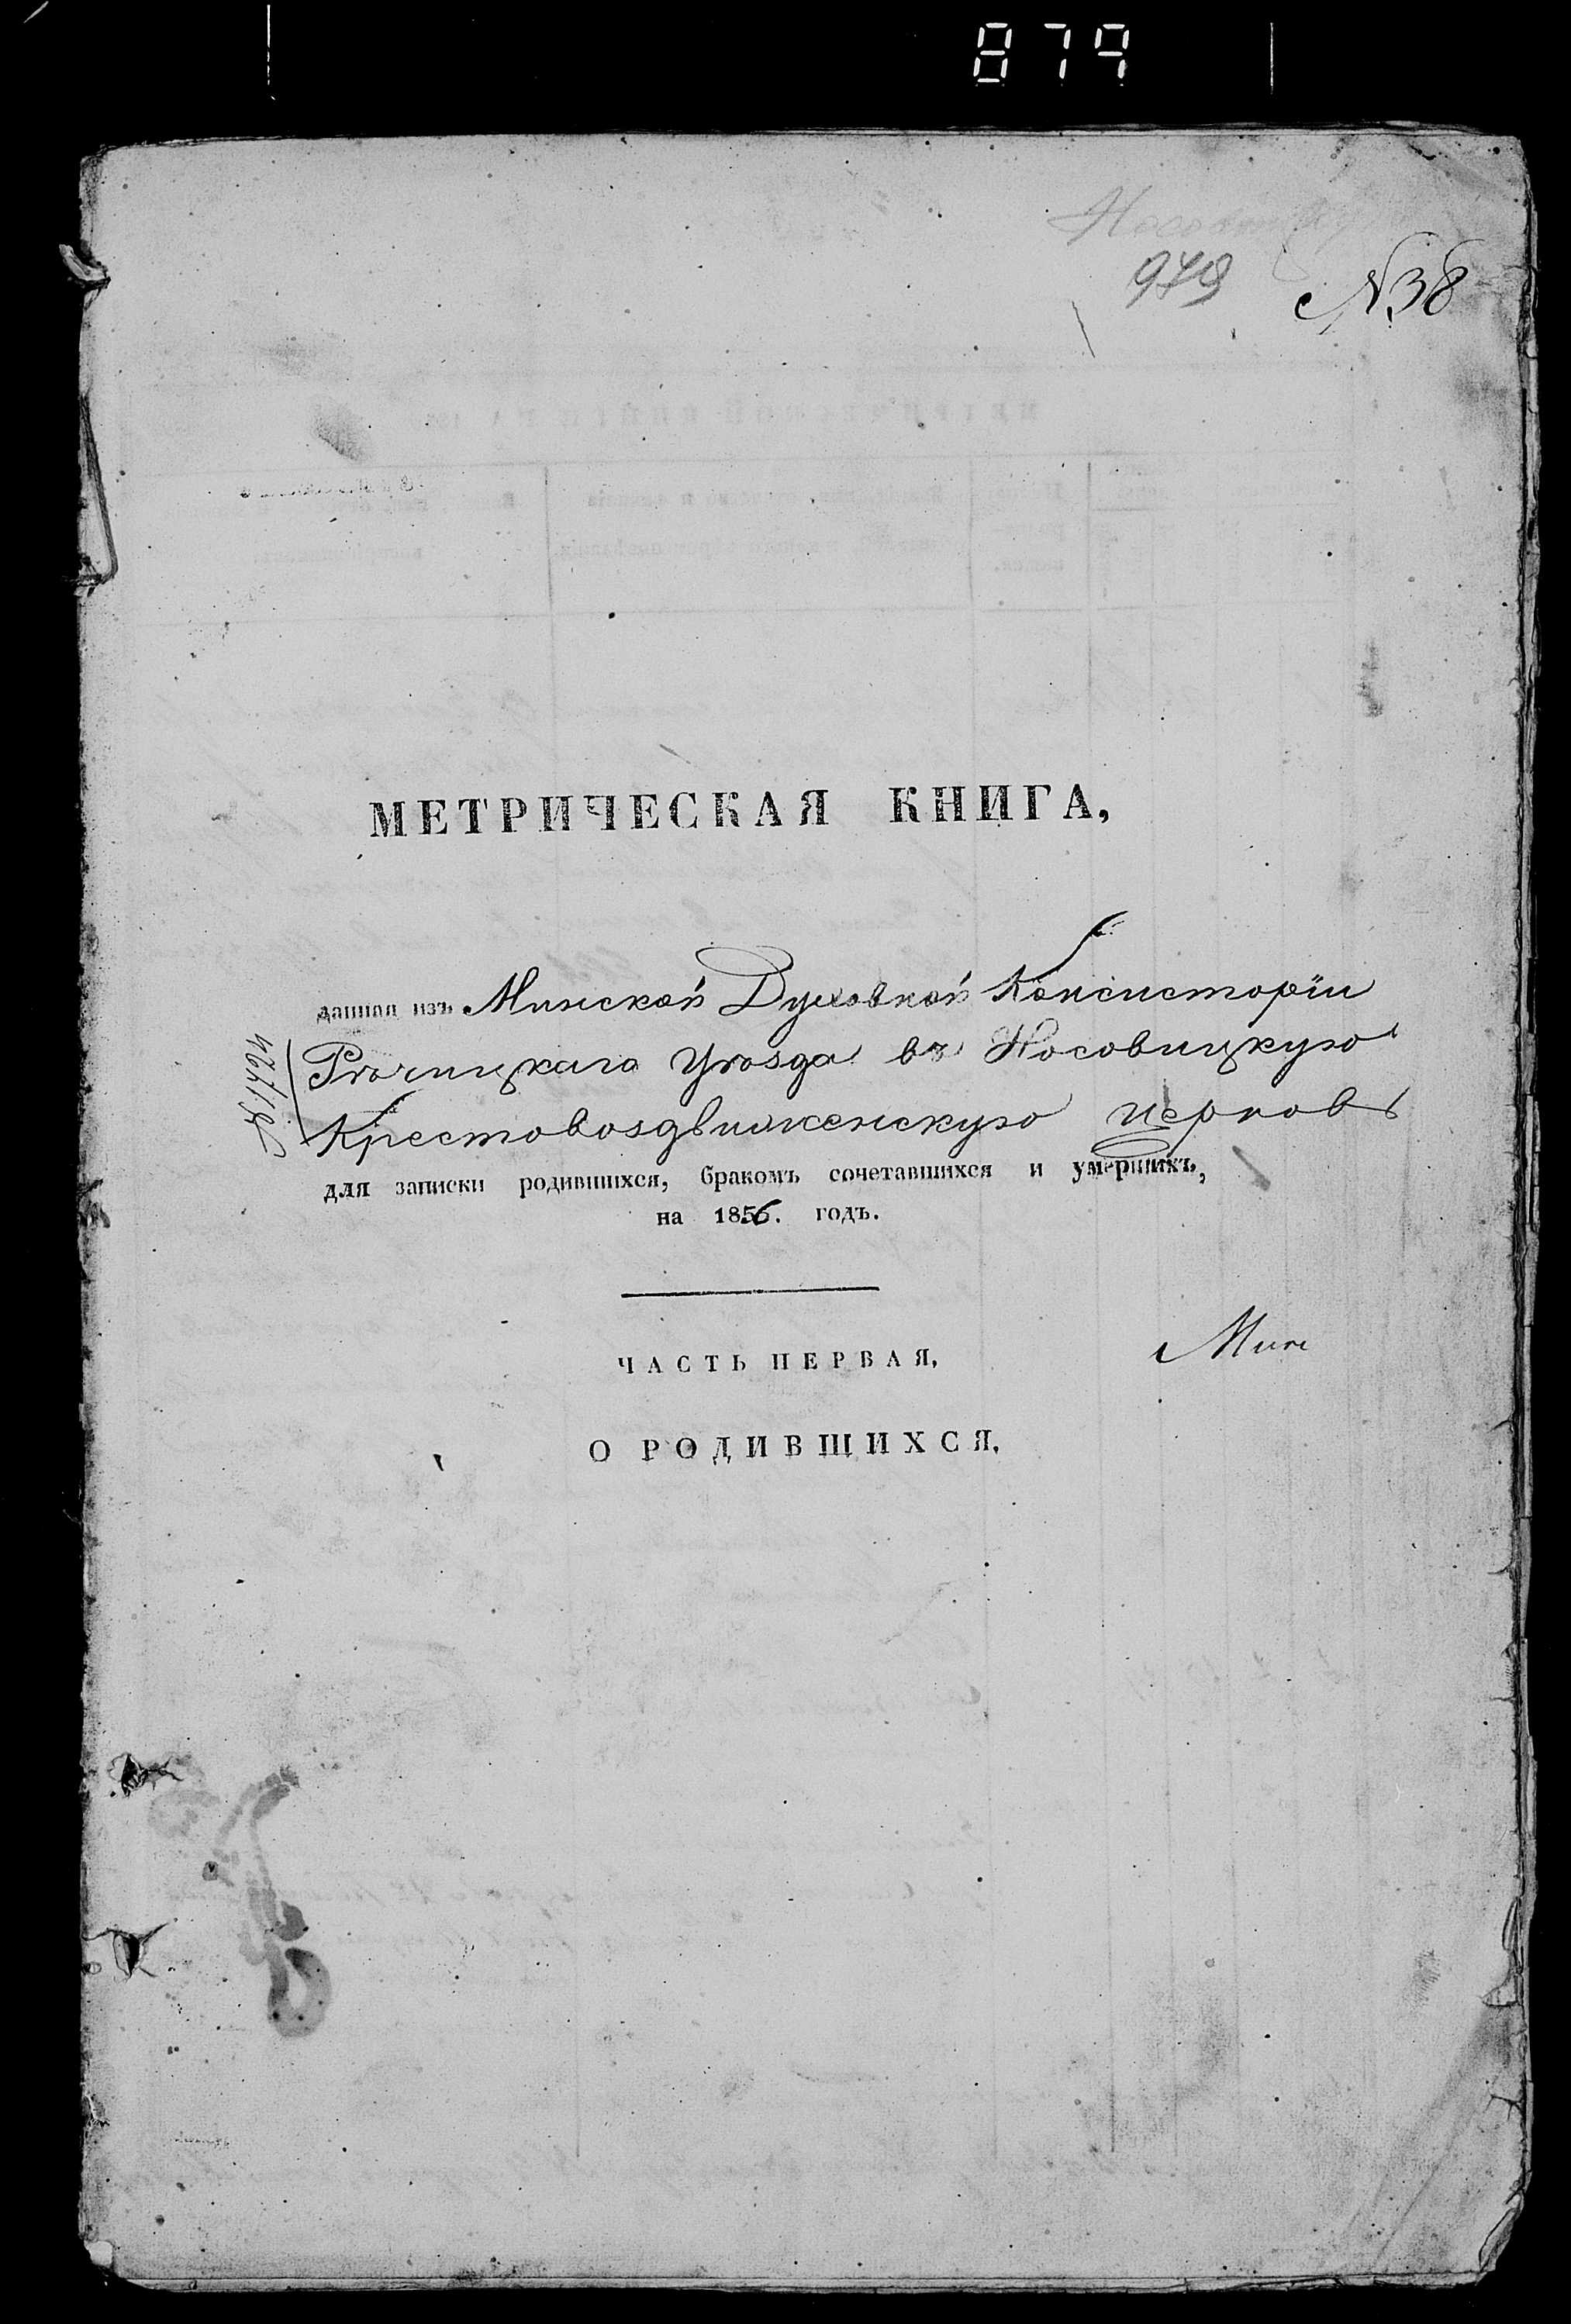 879
979
№ 38
МЕТРИЧЕСКАЯ КНИГА,
данная изъ Минской Духовной Консисторіи
Рѣчицкаго Уѣзда въ Носовицкую
Крестовоздвиженскую церковь
для записки родившихся, бракомъ сочетавшихся и умершихъ,
на 1856. годъ.
ЧАСТЬ ПЕРВАЯ,
О РОДИВШИХСЯ.